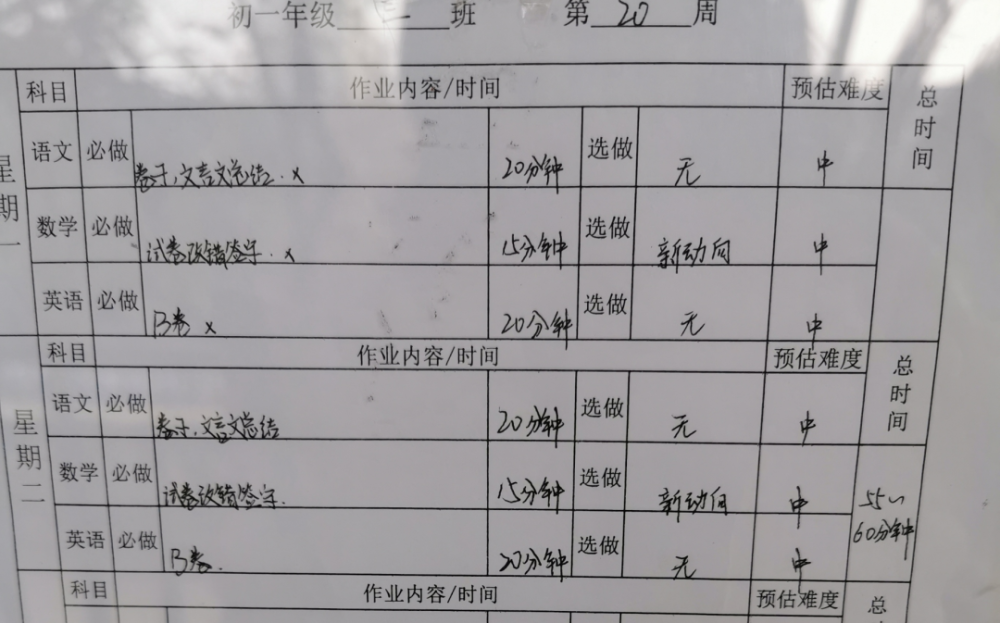 初一年级 二 班 第 20 周
科目 作业内容/时间 预估难度 总时间
星期一
语文 必做 卷子,文言文总结. x 20分钟 选做 无 中
数学 必做 试卷改错签字. x 15分钟 选做 新动向 中
英语 必做 B卷 x 20分钟 选做 无 中
科目 作业内容/时间 预估难度 总时间
星期二
语文 必做 卷子,文言文总结 20分钟 选做 无 中
数学 必做 试卷改错签字. 15分钟 选做 新动向 中 55~60分钟
英语 必做 B卷. 20分钟 选做 无 中
科目 作业内容/时间 预估难度 总